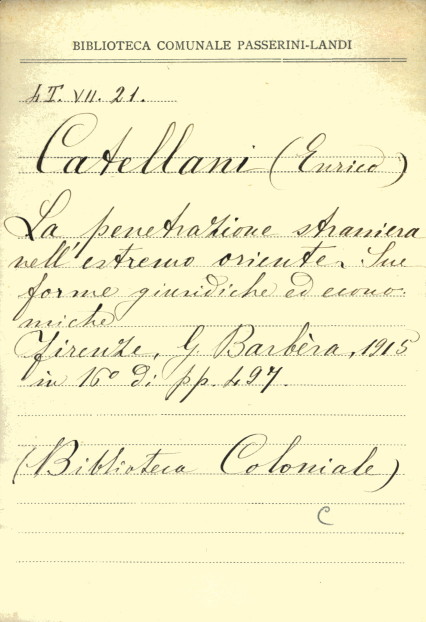 BIBLIOTECA COMUNALE PASSERINI-LANDI
4T. VII. 21.
Catellani (Enrico)
La penetrazione straniera
nell'estremo oriente. Sue
forme giuridiche ed econo-
miche
Firenze, G. Barbèra, 1915
in 16º di pp. 497.
(Biblioteca Coloniale)
C